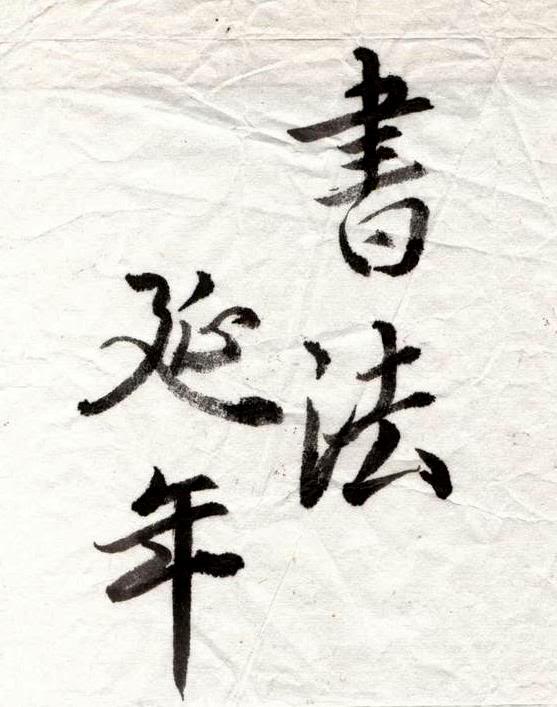 書法
延年